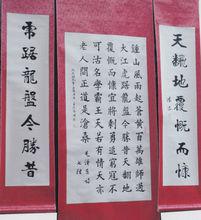 天飜地覆慨而慷
鍾山風雨起蒼黄百萬雄師過
大江虎踞龍盤今勝昔天翻地
覆慨而慷宜將剩勇追窮寇不
可沽名學霸王天若有情天亦
老人間正道是滄桑
毛澤東詩
虎踞龍盤今勝昔